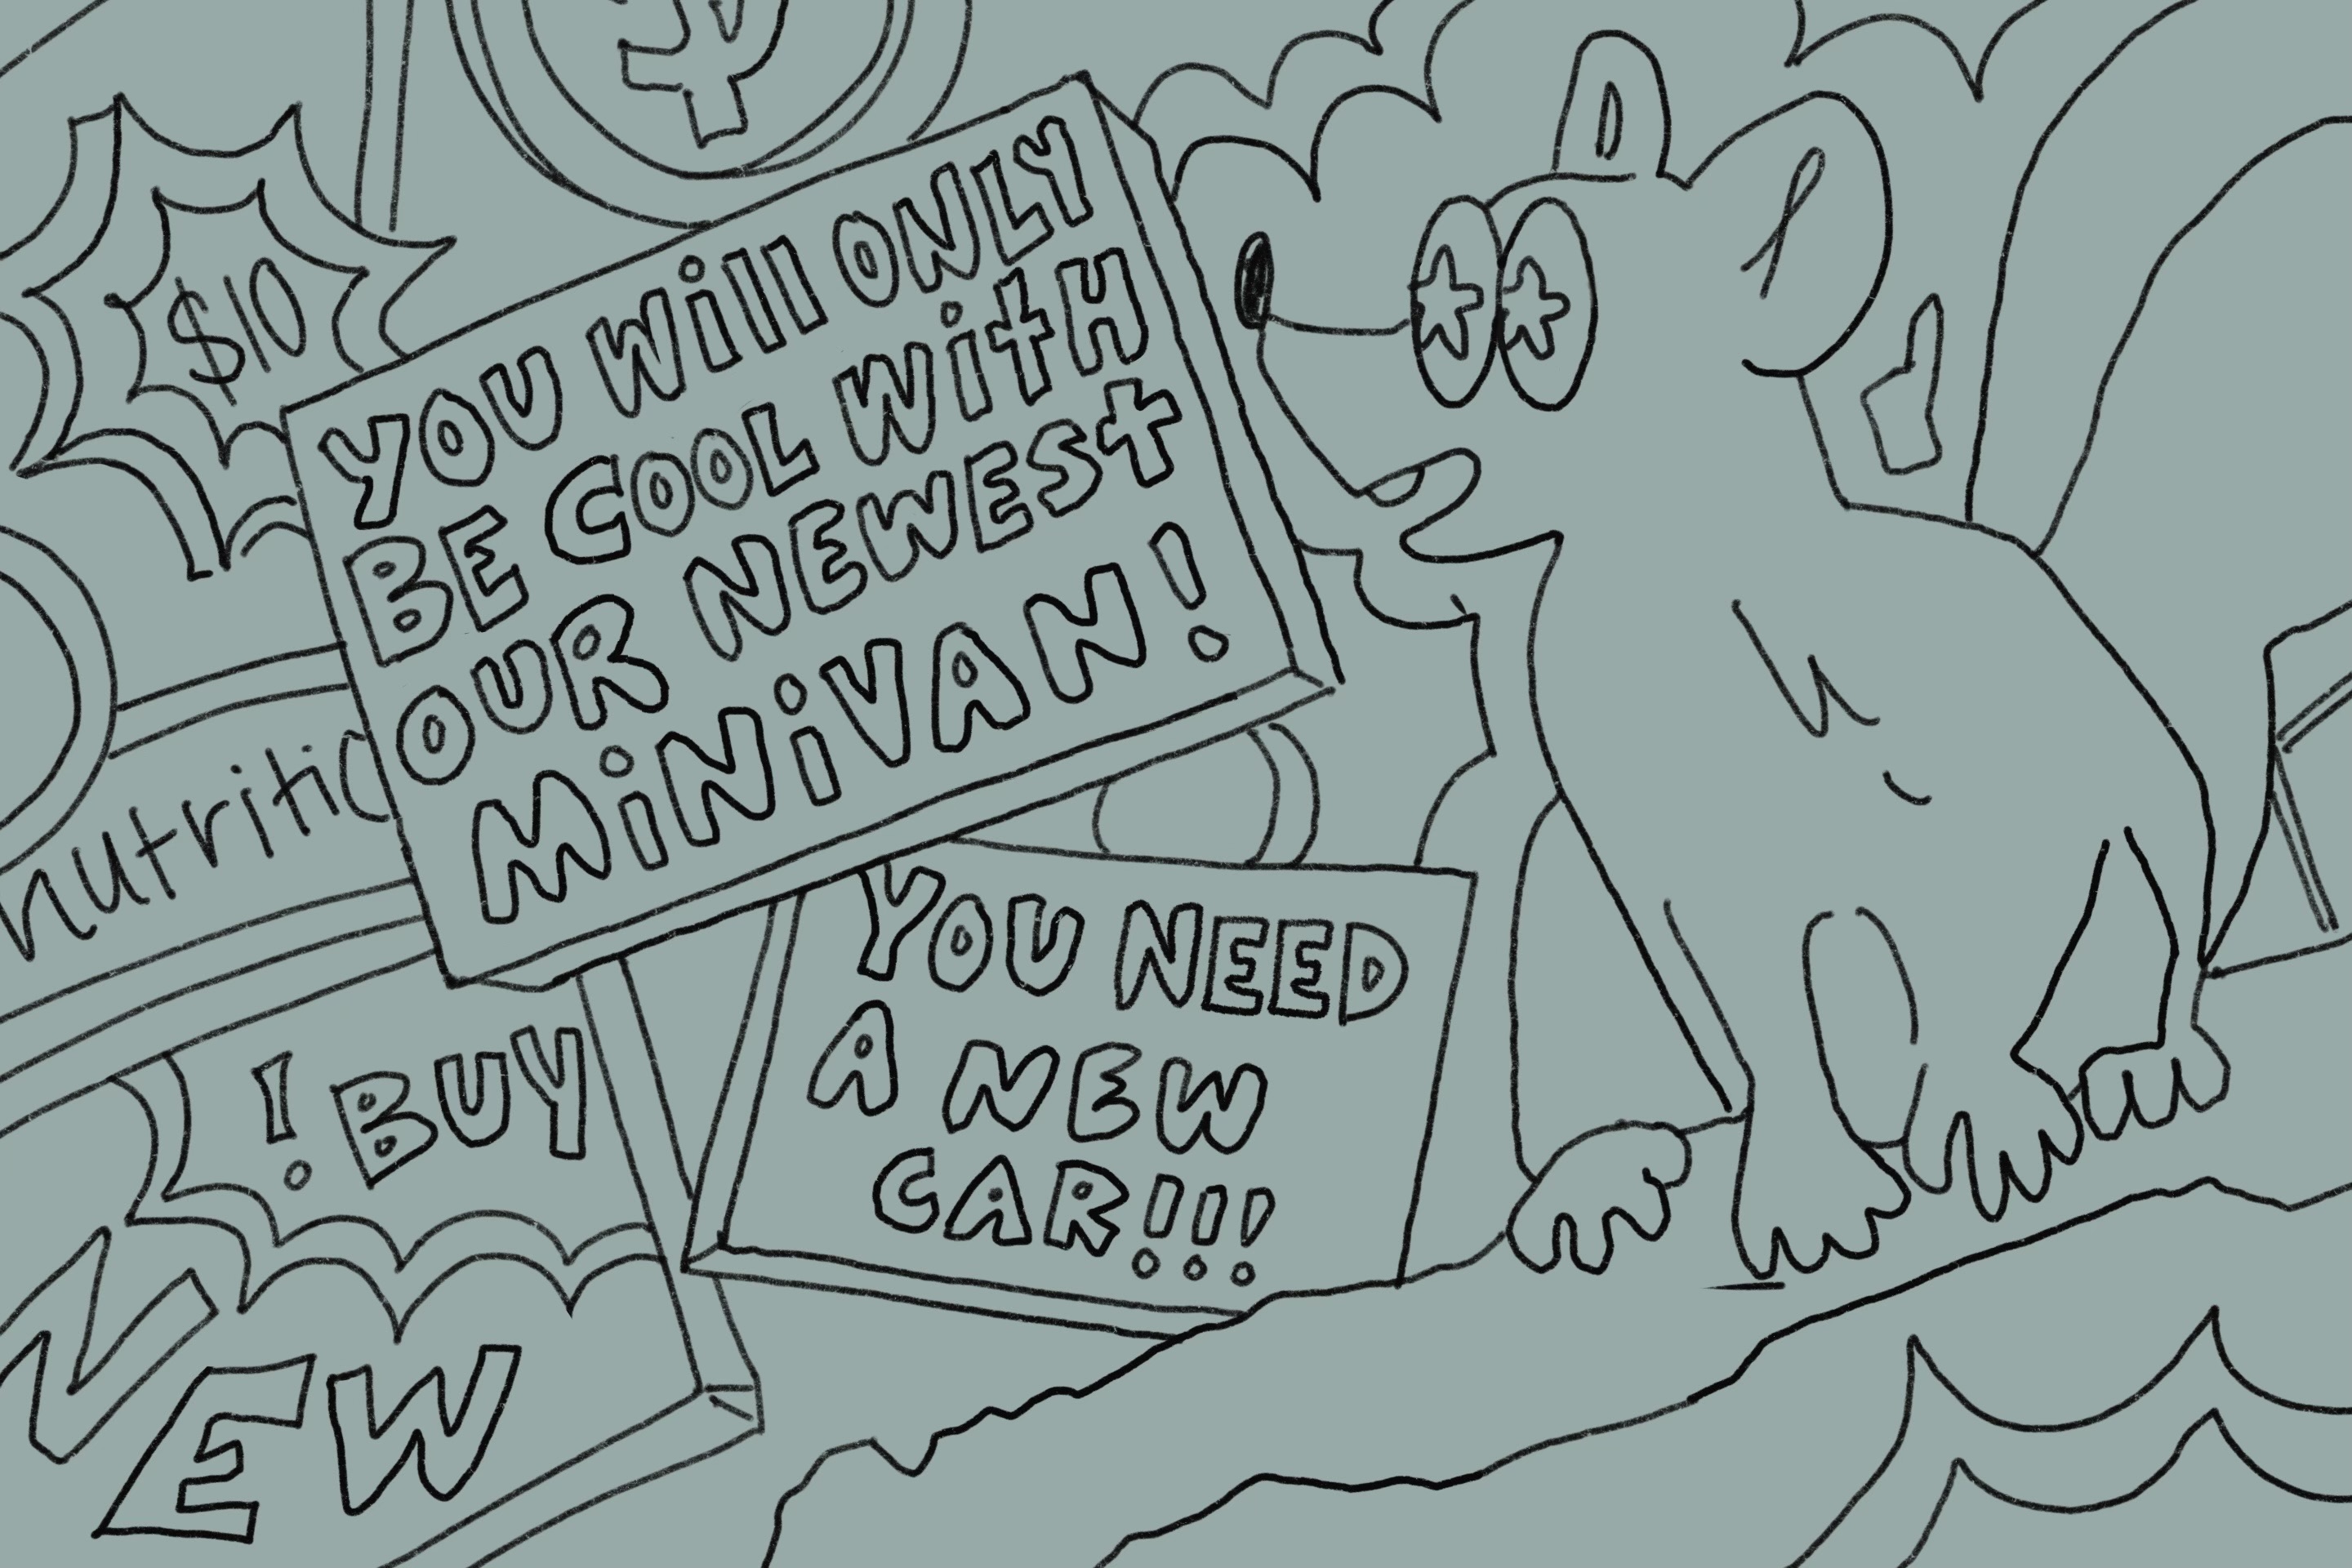 $10
YOU Will ONLY
BE COOL WitH
OUR NEWESt
MiNiVAN!
nutritio
YOU NEED
A NEW
CAR!!!
! BUY
NEW